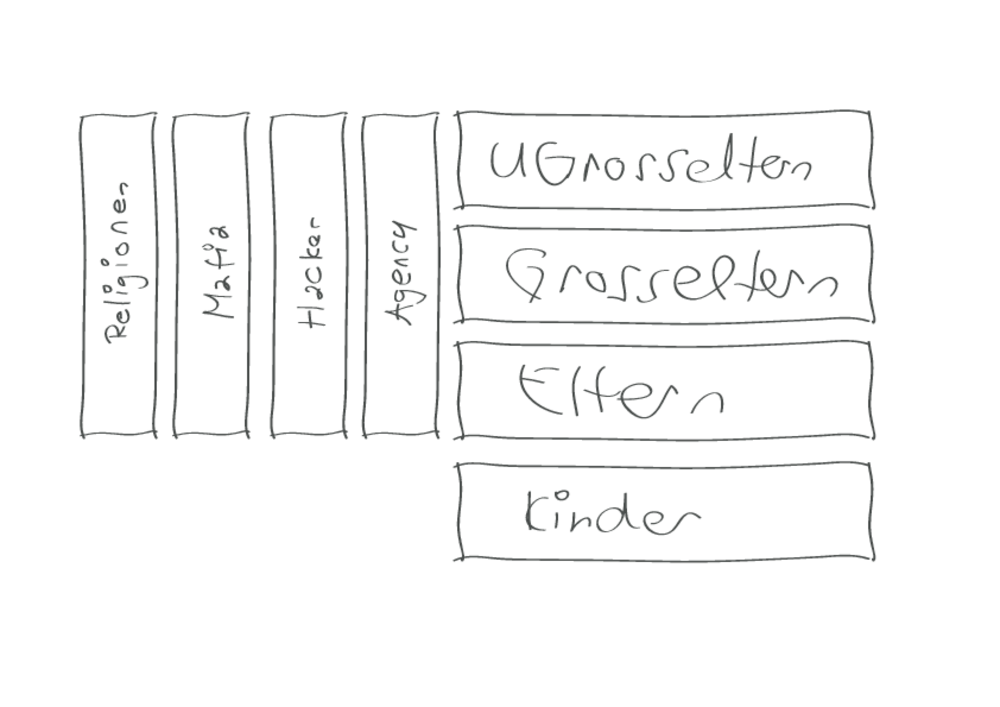 Religionen
Mafia
Hacker
Agency
UGrosseltern
Grosseltern
Eltern
Kinder